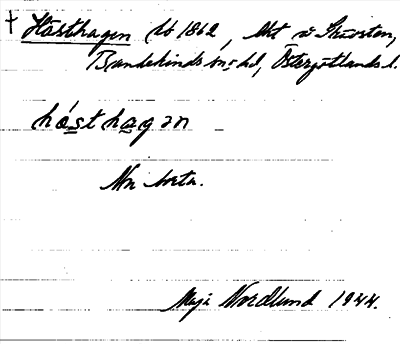 † Hästhagen Lb 1862, tkt o Skirsten,
Bandekinds sn o hd, Östergötlands l.
hásthagən
Nu borta.
Maja Nordlund 1944.